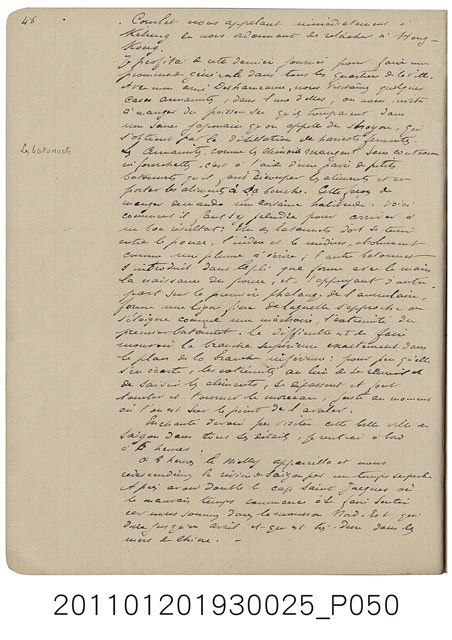 46
. Courbet nous appelant immédiatement à
Kelung en nous ordonnant de relâcher à Hong-
Kong.
Je profitai de cette dernière journée pour faire une
promenade générale dans tous les quartiers de la ville.
Avec mon ami Deshameaux, nous visitâmes quelques
cases annamites, dans l'une d'elles, on nous invite
à manger du poisson sec qu'ils trempaient dans
une sauce japonaise qu'on appelle du Shoyou, qui
s'obtient par la distillation de haricots fermentés.
Les batonnets
Les Annamites, comme les Chinois mangent sans couteau
ni fourchette, c'est à l'aide d'une paire de petits
batonnets qu'il faut découper les aliments et en
porter les aliments à sa bouche. Cette façon de
manger demande une certaine habitude. Voici
comment il faut se prendre pour arriver à
un bon résultat: Un des batonnets doit se tenir
entre le pouce, l'index et le médius, absolument
comme une plume à écrire; l'autre batonnet
s'introduit dans le pli que forme avec la main
la naissance du pouce, et l'appuyant d'autre
part sur la première phalange de l'annulaire,
forme une ligne fixe de laquelle s'approche ou
s'éloigne comme une machoire, l'extrémité du
premier batonnet. La difficulté est de faire
mouvoir la branche supérieure exactement dans
le plan de la branche inférieure: pour peu qu'elle
s'en écarte, les extrémités au lieu de se
de saisir les aliments, se dépassent et font
tomber et tourner le morceau, juste au moment
où l'on est sur le point de l'avaler.
Enchanté d'avoir pu visiter cette belle ville de
Saïgon dans tous les détails, je rentrai à bord
à heures.
à 8 heures le appareilla et nous
redescendîmes la rivière de Saïgon par un temps superbe
Après avoir doublé le cap Saint Jacques où
le mauvais temps commence à se faire sentir
car nous sommes dans la mousson Nord-Est qui
dure jusqu'en avril et qui est très dure dans les
mers de Chine. -
201101201930025_P050